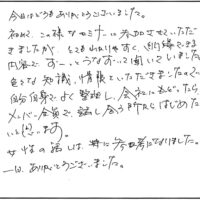 今日はどうもありがとうございました。
初めて、この様なセミナーに参加させていただ
きましたが、とてもわかりやすく、納得できる
内容で、ずーっとうなずいて聞いていました。
色々な知識、情報といただきましたので
自分自身でよく整理し、会社にもどったら
メンバー全員で話し合う所からはじめた
いと思います。
女性の話しは、特に参考になりました。
一日、ありがとうございました。